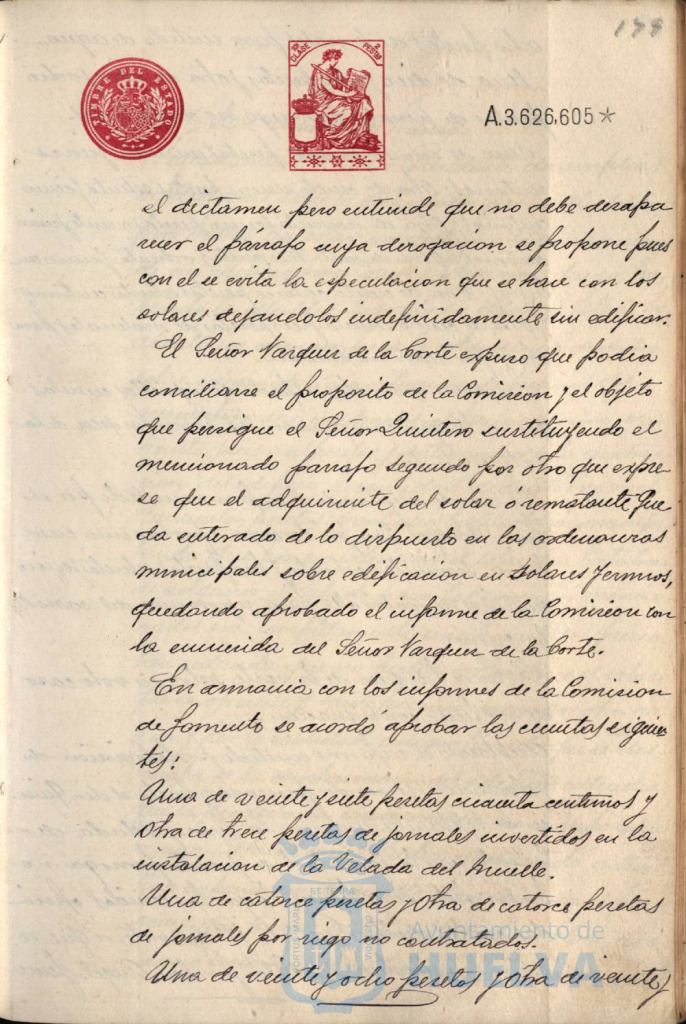 179
TIMBRE DEL ESTADO
10ª CLASE 2 PESTAS
A.3.626,605*
el dictamen pero entiende que no debe desapa
recer el párrafo cuya derogacion se propone pues
con el se evita la especulacion que se hace con los
solares dejandolos indefinidamente sin edificar.
El Señor Vazquez de la Corte expuso que podia
conciliarse el proposito de la Comision y el objeto
que persigue el Señor Quintero sustituyendo el
mencionado parrafo segundo por otro que expre-
se que el adquirente del solar ó rematante que
da enterado de lo dispuesto en las ordenanzas
municipales sobre edificacion en solares yermos,
quedando aprobado el informe de la Comision con
la enmienda del Señor Vazquez de la Corte.
En armonia con los informes de la Comision
de fomento se acordó aprobar las cuentas siguien
tes:
Una de veinte y siete pesetas cincuenta centimos y
otra de trece pesetas de jornales invertidos en la
instalacion de la Velada del Muelle.
Una de catorce pesetas y otra de catorce pesetas
de jornales por riego no contratados.
Una de veinte y ocho pesetas y otra de veinte y
Ayuntamiento de
HUELVA